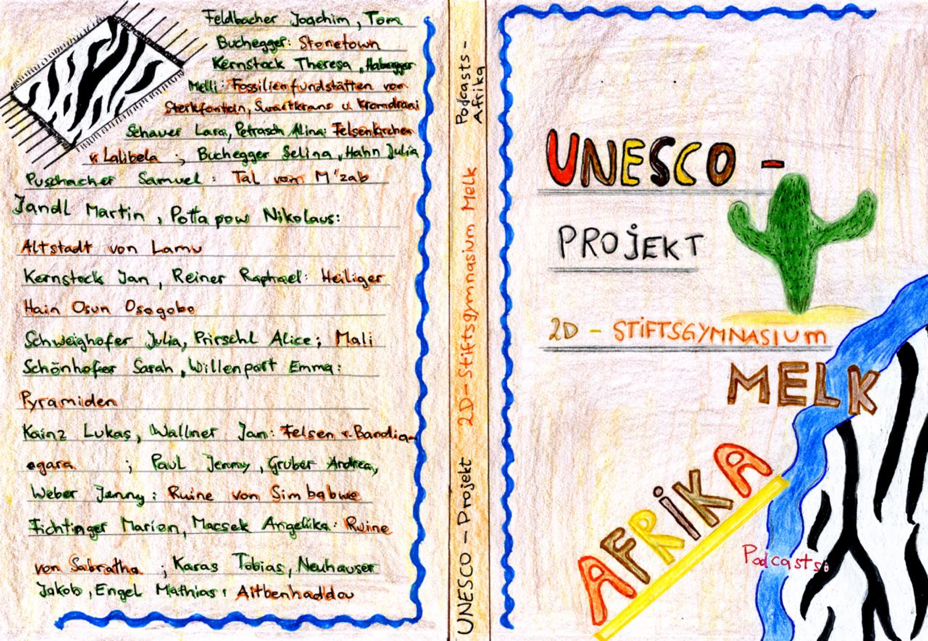 Feldbacher Joachim, Tom
Buchegger: Stonetown
Kernstock Theresa, Habegger
Melli: Fossilienfundstätten von
Sterkfontein, Swartkrans u. Kromdraai
Schauer Lara, Petrasch Alina: Felsenkirchen
v. Lalibela ; Buchegger Selina, Hahn Julia
Puschacher Samuel: Tal vom M'zab
Jandl Martin, Potta pow Nikolaus:
Altstadt von Lamu
Kernstock Jan, Reiner Raphael: Heiliger
Hain Osun Osogobo
Schweighofer Julia, Prirschl Alice; Mali
Schönhofer Sarah, Willenpart Emma:
Pyramiden
Kainz Lukas, Wallner Jan: Felsen v. Bandia-
gara ; Paul Jemmy, Gruber Andrea,
Weber Jenny: Ruine von Simbabwe
Fichtinger Marien, Macsek Angelika: Ruine
von Sabratha ; Karas Tobias, Neuhauser
Jakob, Engel Mathias: Aitbenhaddou
UNESCO - Projekt 2D - Stiftsgymnasium Melk Podcasts -
Afrika
UNESCO -
PROJEKT
2D - STIFTSGYMNASIUM
MELK
AFRIKA
Podcasts: